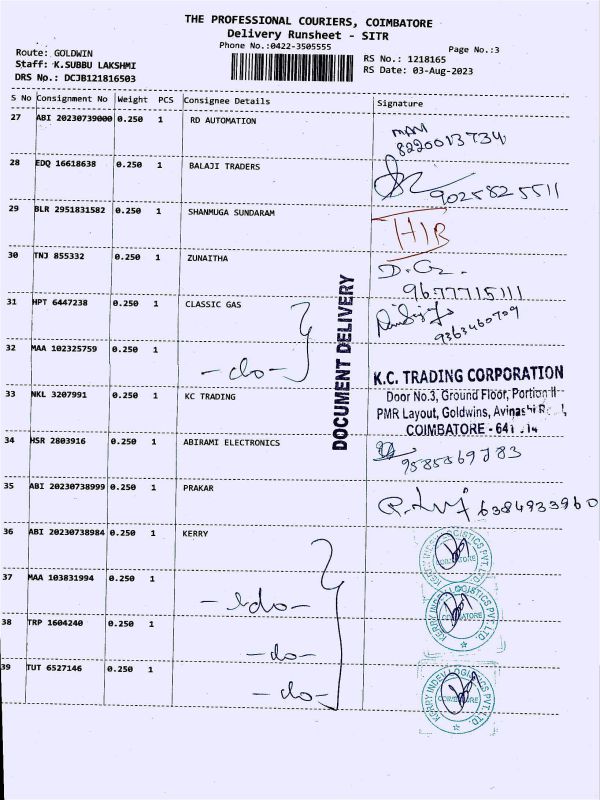 THE PROFESSIONAL COURIERS, COIMBATORE
Delivery Runsheet - SITR
Phone No.:0422-3505555
Page No.:3
Route: GOLDWIN
Staff: K.SUBBU LAKSHMI
DRS No.: DCJB121816503
RS No.: 1218165
RS Date: 03-Aug-2023
S No Consignment No Weight PCS Consignee Details Signature
27 ABI 20230739000 0.250 1 RD AUTOMATION
8220013734
28 EDQ 16618638 0.250 1 BALAJI TRADERS
9025825511
29 BLR 2951831582 0.250 1 SHANMUGA SUNDARAM
30 TNJ 855332 0.250 1 ZUNAITHA
9677715111
31 HPT 6447238 0.250 1 CLASSIC GAS
9363460709
32 MAA 102325759 0.250 1 -do-
DOCUMENT DELIVERY
33 NKL 3207991 0.250 1 KC TRADING
K.C. TRADING CORPORATION
Door No.3, Ground Floor, Portion II
PMR Layout, Goldwins, Avinashi
COIMBATORE - 641
34 HSR 2803916 0.250 1 ABIRAMI ELECTRONICS
35 ABI 20230738999 0.250 1 PRAKAR
6384933960
36 ABI 20230738984 0.250 1 KERRY
37 MAA 103831994 0.250 1 -do-
38 TRP 1604240 0.250 1 -do-
39 TUT 6527146 0.250 1 -do-
KERRY INDEV LOGISTICS PVT. LTD.
COIMBATORE
KERRY INDEV LOGISTICS PVT. LTD.
COIMBATORE
KERRY INDEV LOGISTICS PVT. LTD.
COIMBATORE